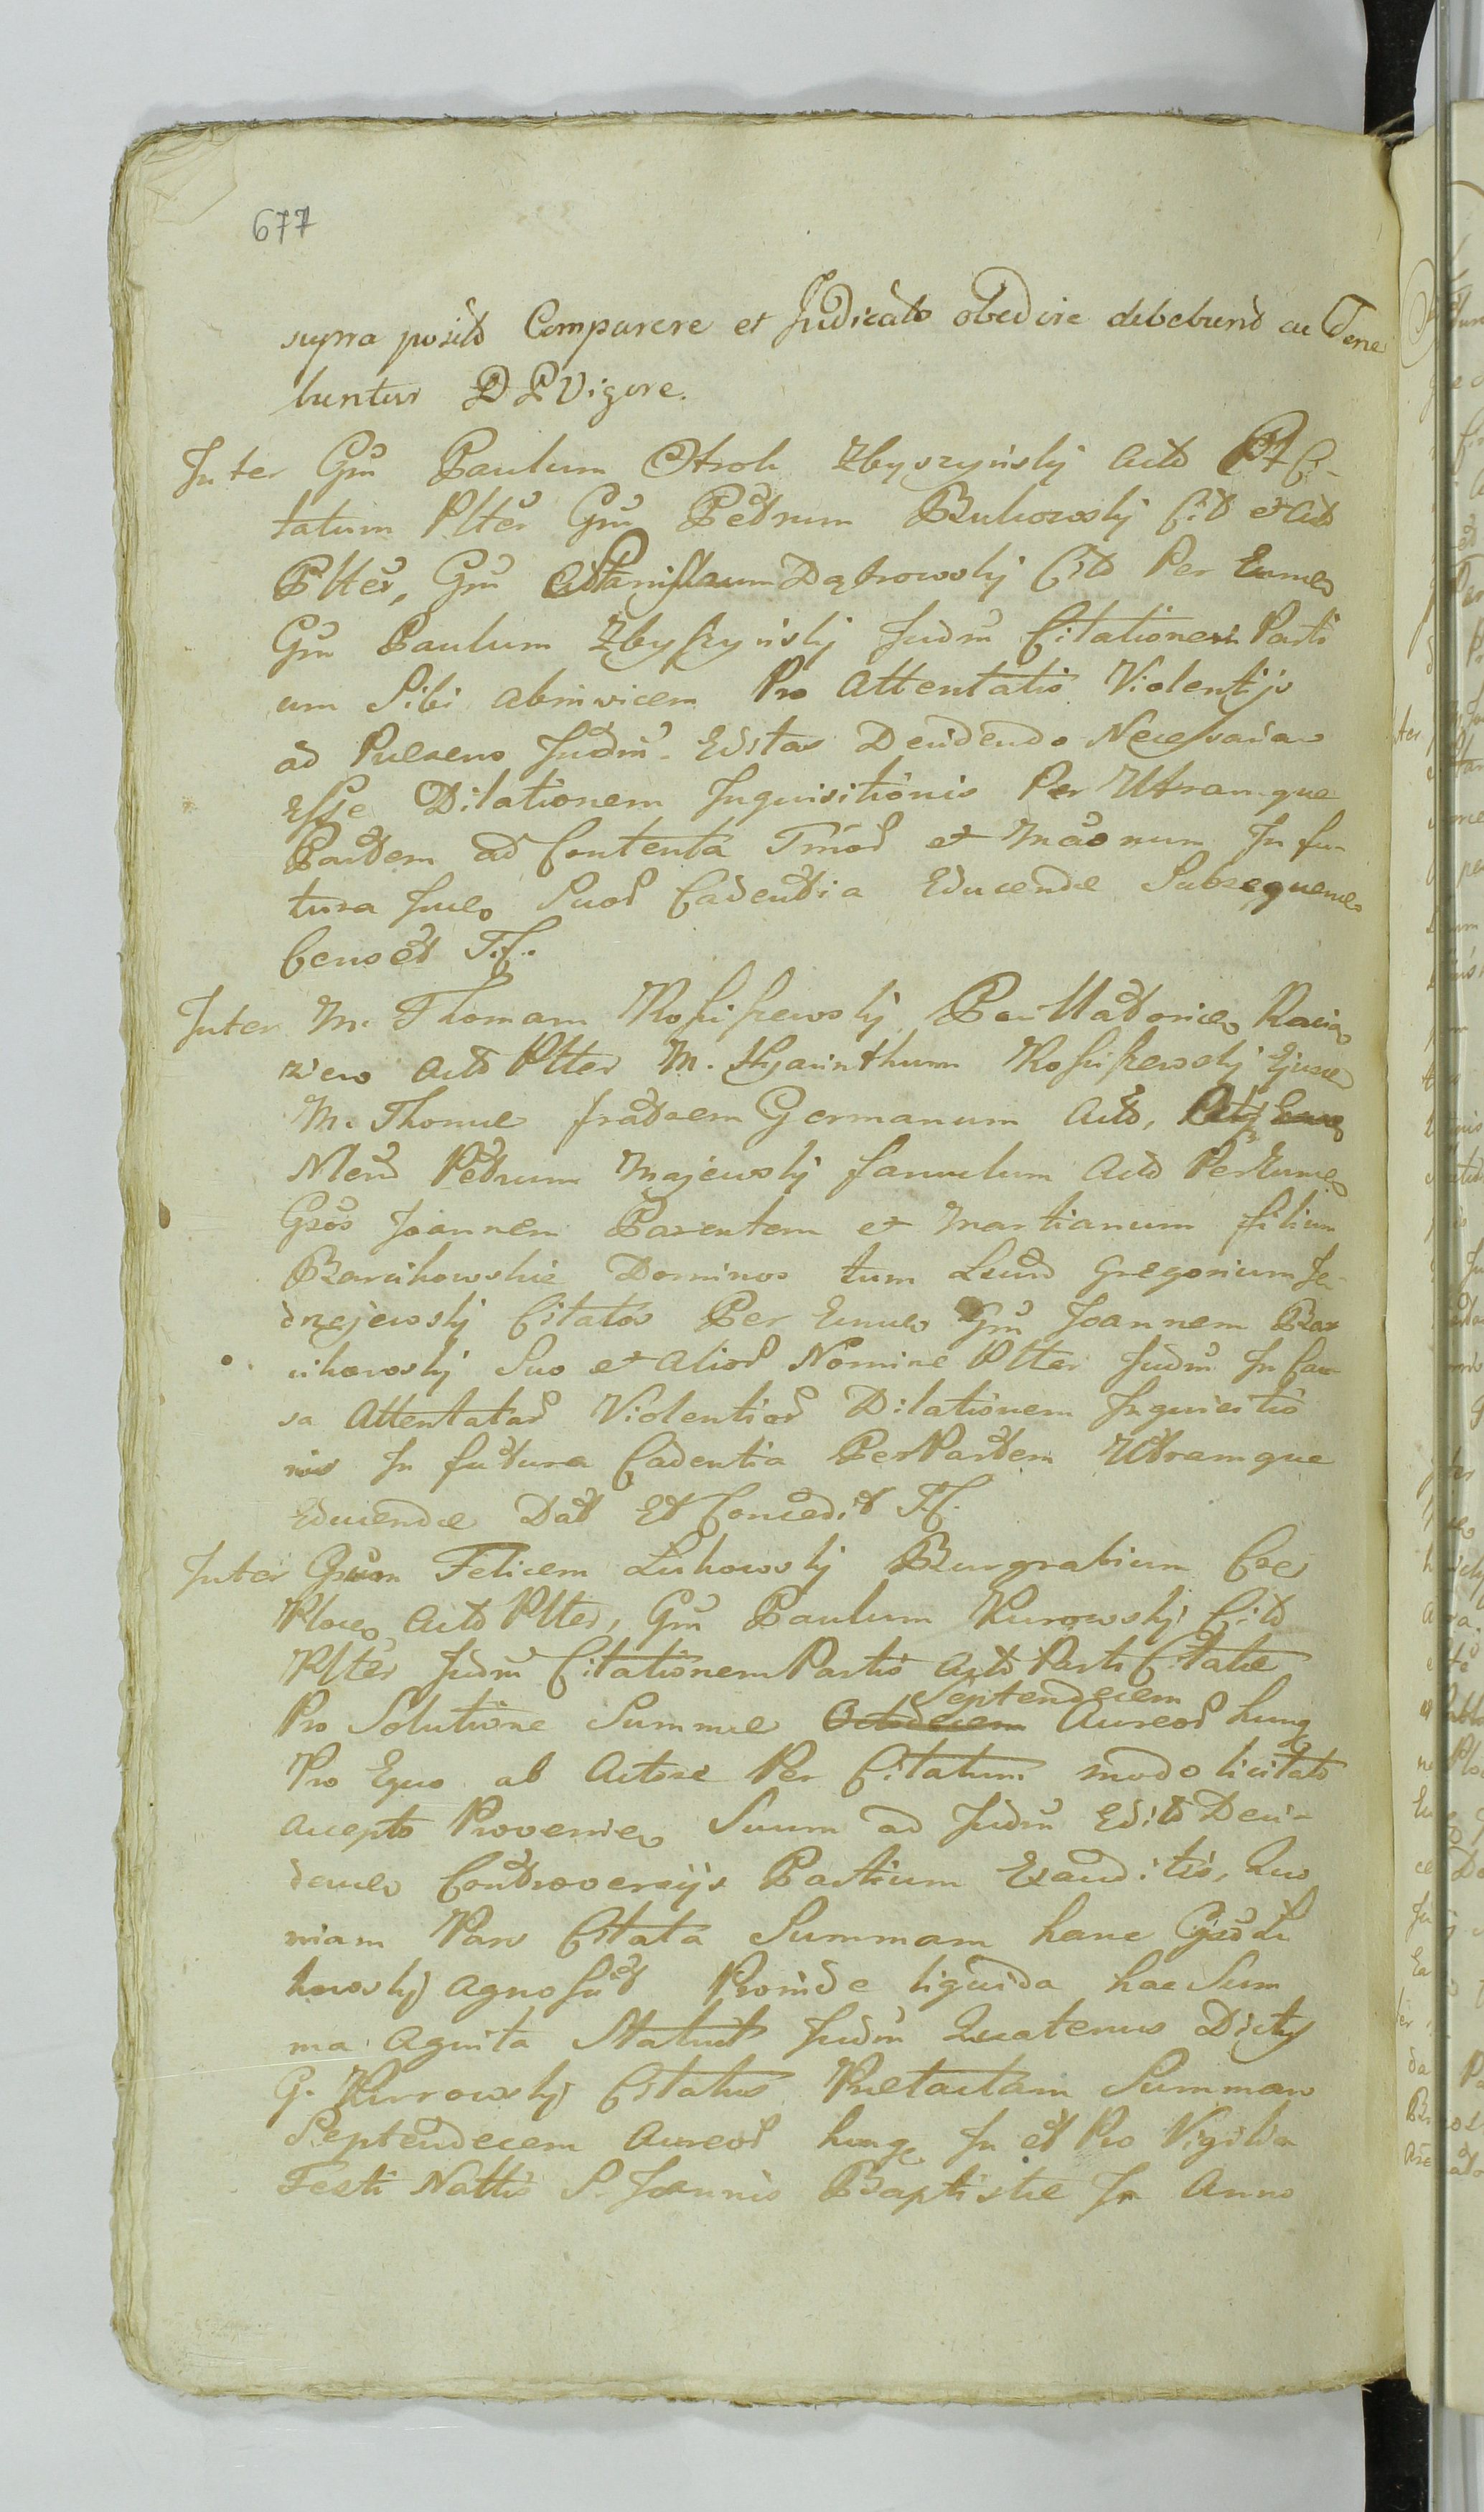 677
supra posit Comparere et Judicato obedire debebunt ac Tene
buntur D P Vigore.
Inter Gm Paulum Otrok Zbyszyński Act et Ci-
tatum Plter Gm Petrum Bukowskj Cit et Act
Plter, Gm Stanislaum Dąbrowskj Cit Per Eume
Gm Paulum Zbyszyńskj Judm Citationem Parti
um Sibi abinvicem Pro Attentatis Violentijs
ad Praesens Judm Editas Decidendo Necessariam
Esse Dilationem Inquisitionis Per Utramque
Partem ad Contenta Tmor et Maonum In fu-
tura Suor Cadentia Educendae Subsequen
Censet T.f.
Inter M. Thomam Rościszewskj Racią
ziew Act Plter M. Hyacinthum Rościszewskj Ejusd
M. Thomae fratrem Germanum Act,
Nend Petrum Majewskj famulum Act Per Eume
Gsos Joannem Parentem et Martianum filium
Barcikowskie Dominos tum Lrund Gregorium Je-
drzejewskj Citatos Per Eume Gm Joannem Bar
cikowskj Suo et Alior Nomine Plter Judm In Cau
sa Attentatar Violentiar Dilationem Inquisitio
nis In futura Cadentia Per Partem Utramque
Educendae Dat Et Concedit T.f.
Inter Gsum Felicem Lukowskj Burgrabium Cae
Ploce Act Plter, Gm Paulum Kurowskj Cit
Plter Judm Citationem Partis Act Parti Citatae
Septendecem
Pro Solutione Summae Octodecem Aureor hung
Pro Equo ab Actore Per Citatum modo licitato
accepto Provenien Suum ad Judm Edit Deci-
denen Controversijs Partium Exauditis, Quo
niam Pars Citata Summam hanc
kowskj agnoscit Proinde liquida hac Sum
ma Agnita Statuit Judm Quatenus Dictus
G. Kurrowskj Citatus Praetactam Summam
Septendecem Aureor hung In et Pro Vigilia
Festi Nattis S. Joannis Baptistae In Anno